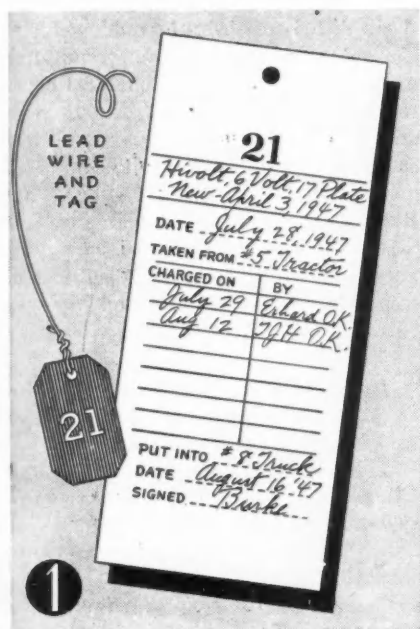 LEAD
WIRE
AND
TAG
21
21
Hivolt, 6 Volt, 17 Plate
New-April 3, 1947
DATE July 28, 1947
TAKEN FROM #5 Tractor
CHARGED ON BY
July 29 Erhard O.K.
Aug 12 TJH O.K.
PUT INTO #8 Truck
DATE August 16 '47
SIGNED Burke
1